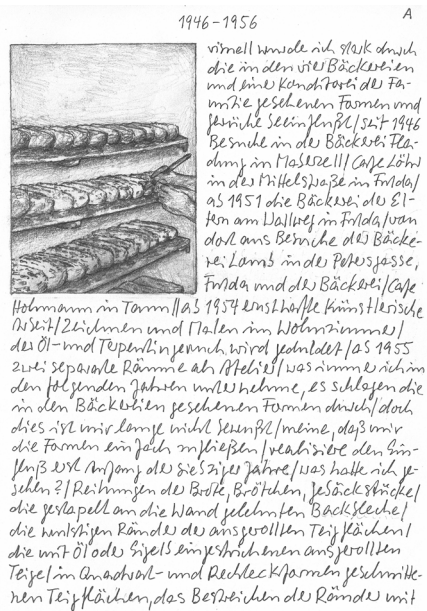 A
1946-1956
visuell wurde ich stark durch
die in den vier Bäckereien
und einer Konditorei der Fa-
milie gesehenen Formen und
Gerüche beeinflußt/seit 1946
Besuche in der Bäckerei Fla-
dung in Maberzell/Cafe Löhr
in der Mittelstraße in Fulda/
ab 1951 die Bäckerei der El-
tern am Wallweg in Fulda/von
dort aus Besuche der Bäcke-
rei Lamb in der Petersgasse,
Fulda und der Bäckerei/Cafe
Hohmann in Tann//ab 1954 ernsthafte künstlerische
Arbeit/Zeichnen und Malen im Wohnzimmer/
der Öl- und Terpentingeruch wird geduldet/ab 1955
zwei separate Räume als Atelier/was immer ich in
den folgenden Jahren unternehme, es schlagen die
in den Bäckereien gesehenen Formen durch/doch
dies ist mir lange nicht bewußt/meine, daß mir
die Formen einfach zufließen/realisiere den Ein-
fluß erst Anfang der siebziger Jahre/was hatte ich ge-
sehen?/Reihungen der Brote, Brötchen, Gebäckstücke/
die gestapelt an die Wand gelehnten Backbleche/
die wulstigen Ränder der ausgerollten Teigflächen/
die mit Öl oder Eigelb eingestrichenen ausgerollten
Teige/in Quadrat- und Rechteckformen geschnitte-
nen Teigflächen, das Bestreichen der Ränder mit